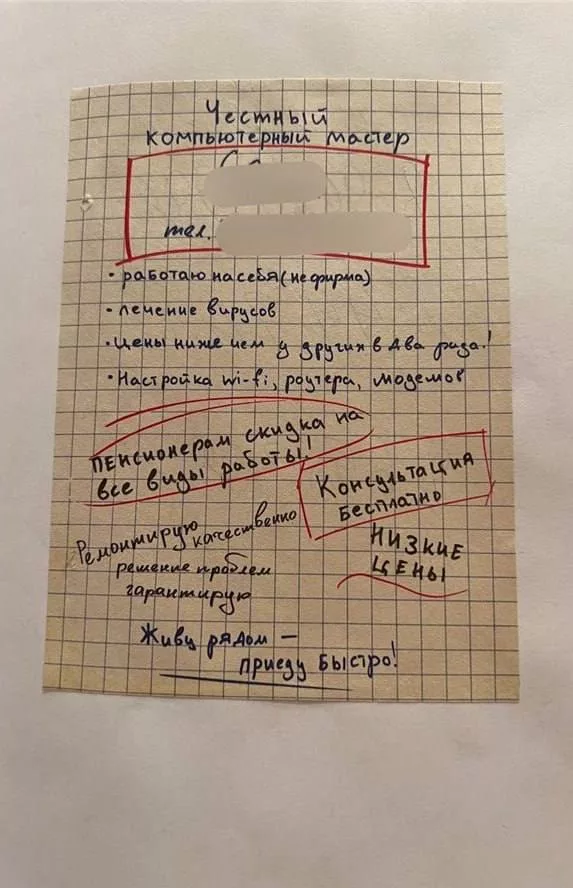 Честный
компьютерный мастер
тел.
• работаю на себя (не фирма)
• лечение вирусов
• Цены ниже чем у других в два раза!
• Настройка wi-fi, роутера, модемов
Пенсионерам скидка на
все виды работы!
Консультация
бесплатно
Ремонтирую качественно
решение проблем
гарантирую
НИЗКИЕ
ЦЕНЫ
Живу рядом –
приеду быстро!